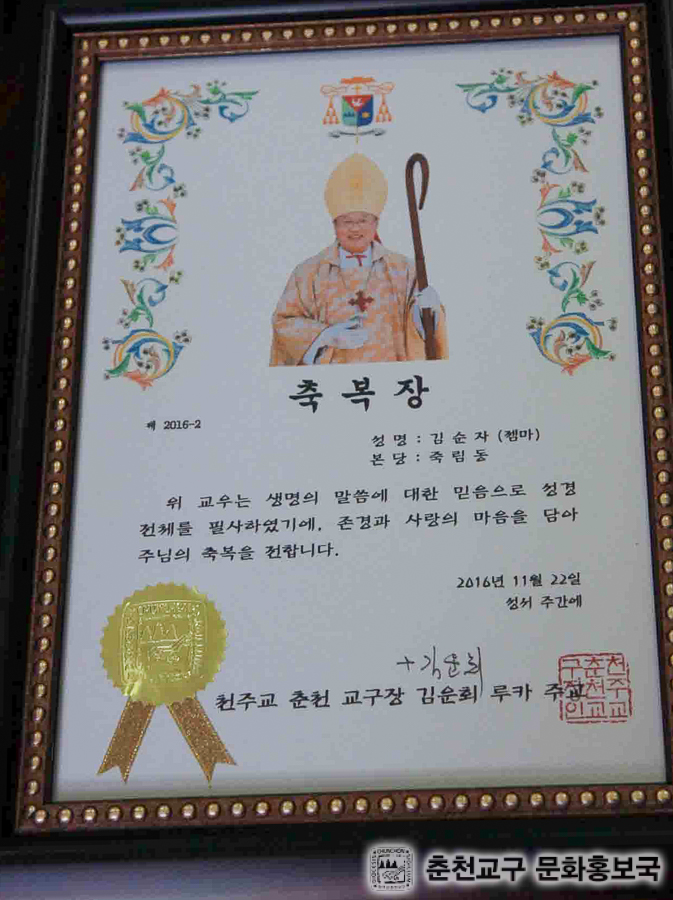 축복장
제 2016-2
성 명 : 김 순 자 (젬마)
본 당 : 죽 림 동
위 교우는 생명의 말씀에 대한 믿음으로 성경
전체를 필사하였기에, 존경과 사랑의 마음을 담아
주님의 축복을 전합니다.
2016년 11월 22일
성서 주간에
+ 김운회
천주교 춘천 교구장 김운회 루카 주교
춘천교구 문화홍보국